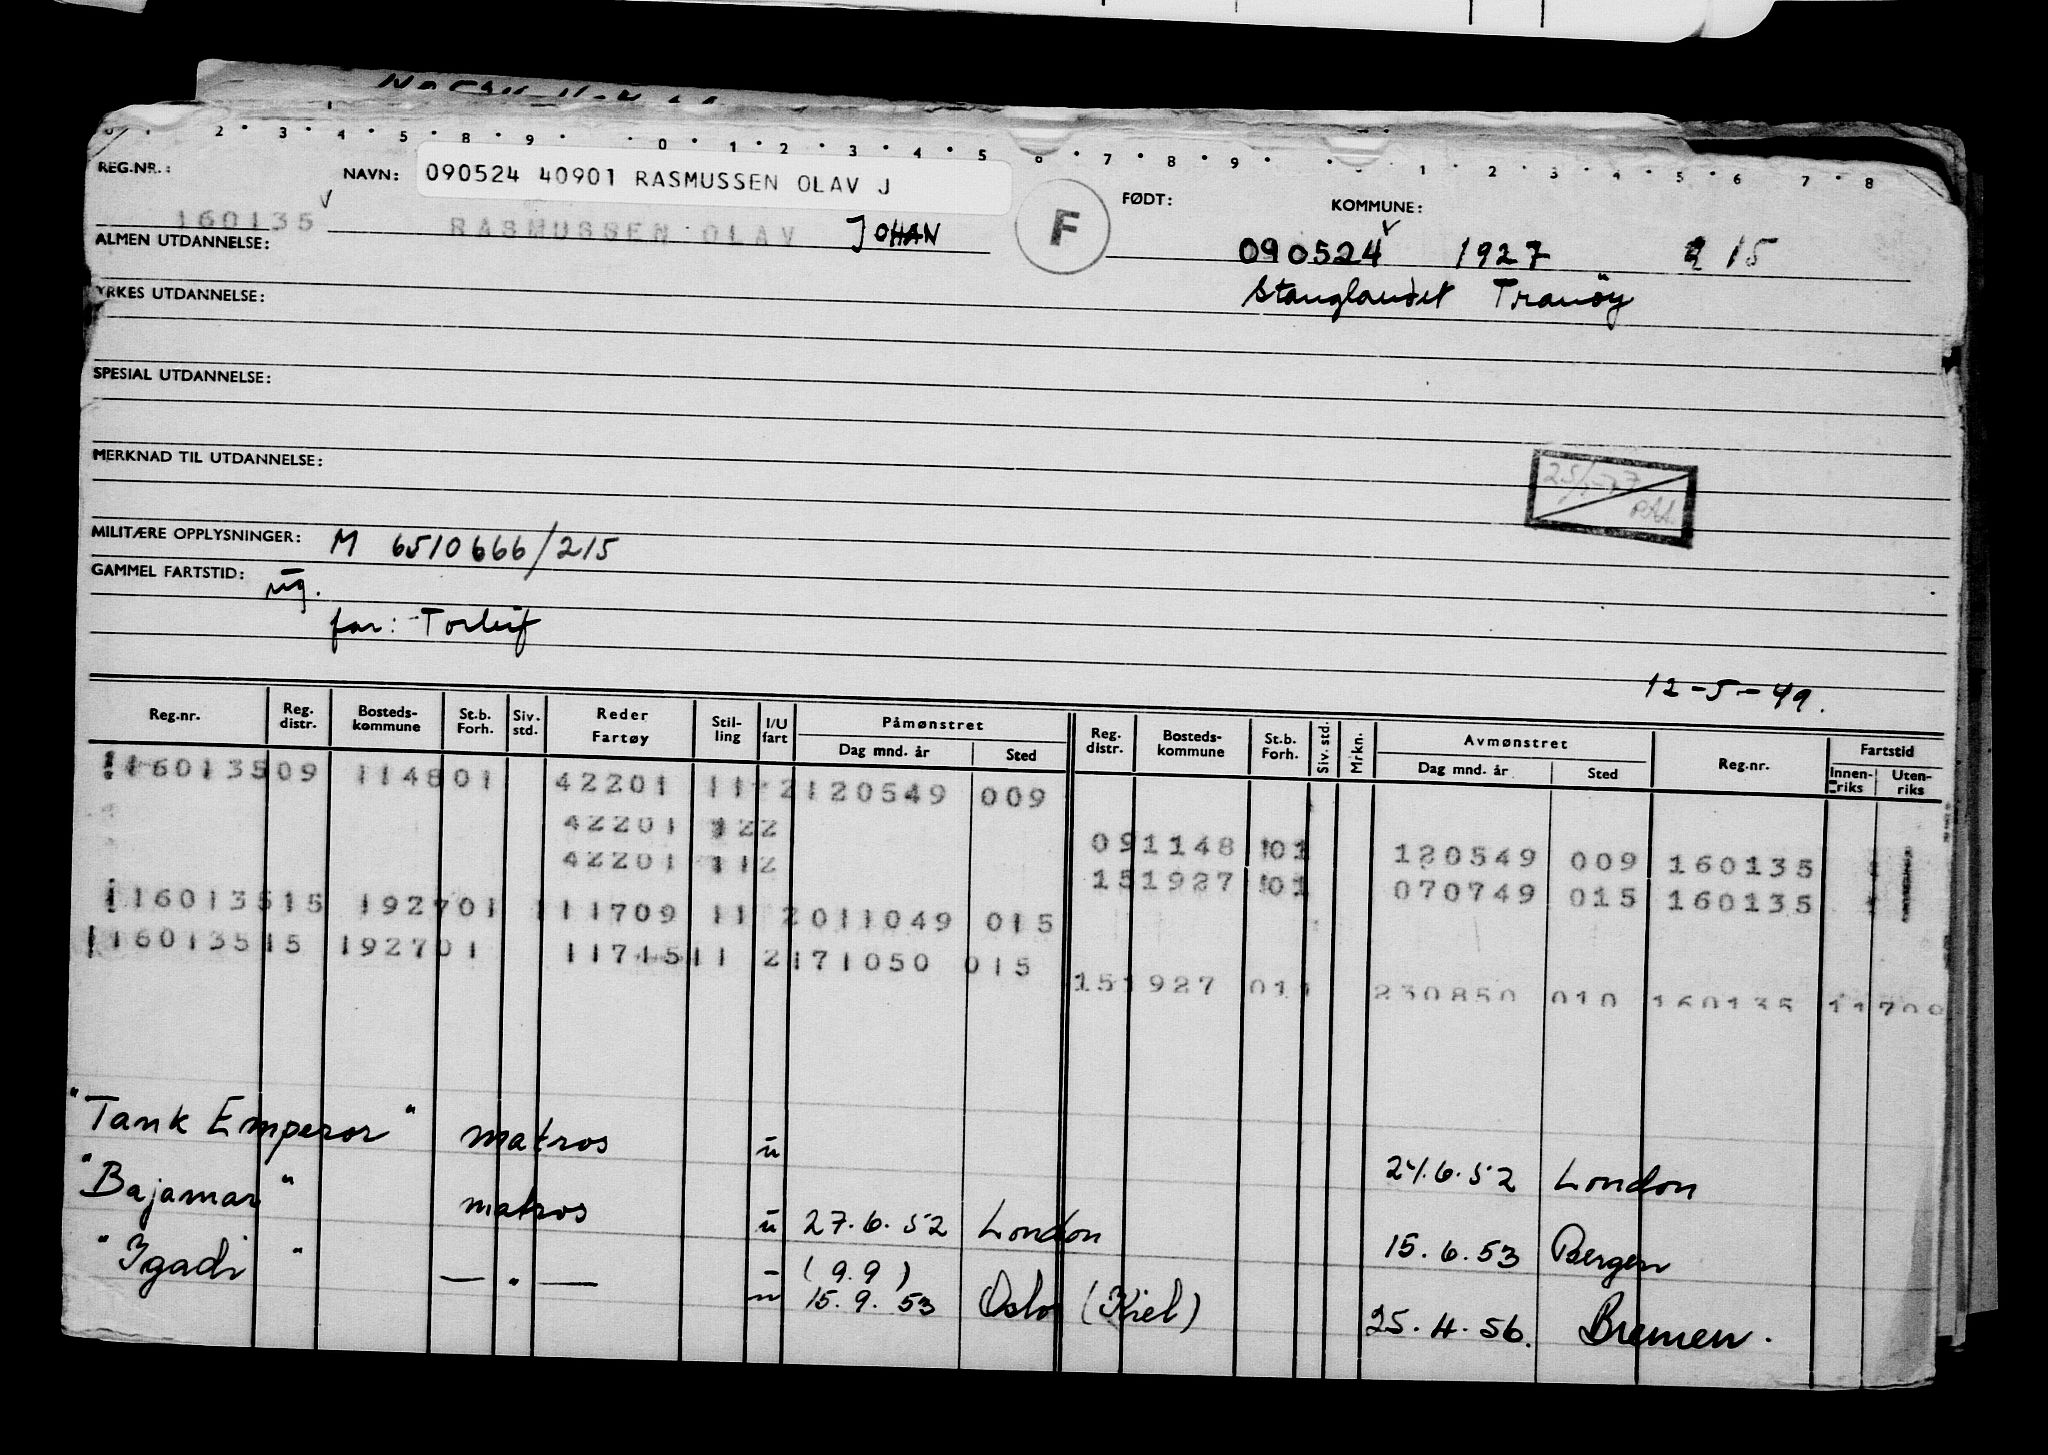 2 3 4 5 8 9 0 1 2 3 4 5 6 7 8 9 1 2 3 4 5 6 7 8
REG.NR.: NAVN: 090524 40901 RASMUSSEN OLAV J FØDT: KOMMUNE:
160135 RASMUSSEN OLAV JOHAN F 090524 1927 2 15
ALMEN UTDANNELSE:
Stanglandet Tranöy
YRKES UTDANNELSE:
SPESIAL UTDANNELSE:
MERKNAD TIL UTDANNELSE:
MILITÆRE OPPLYSNINGER: M 6510666/215
GAMMEL FARTSTID: ug.
far: Torleif
12-5-49.
Reg.nr. Reg. distr. Bosteds-kommune St.b. Forh. Siv. std. Reder Fartøy Stil-ling I/U fart Påmønstret Dag mnd. år Sted Reg. distr. Bosteds-kommune St.b. Forh. Siv. std. Mrkn. Avmønstret Dag mnd. år Sted Reg.nr. Fartstid Innen-riks Uten-riks
16013509 114801 42201 11 2120549 009
42201 122 091148 01 120549 009 160135
42201 112 151927 01 070749 015 160135
16013515 192701 111709 11 2011049 015
16013515 192701 11715 11 2171050 015
151927 011 230850 010 160135 11709
"Tank Emperor" matros u 24.6.52 London
"Bajamar" matros u 27.6.52 London 15.6.53 Bergen
"Igadi" — " — (9.9)
15.9.53 Oslo (Kiel) 25.4.56. Bremen.